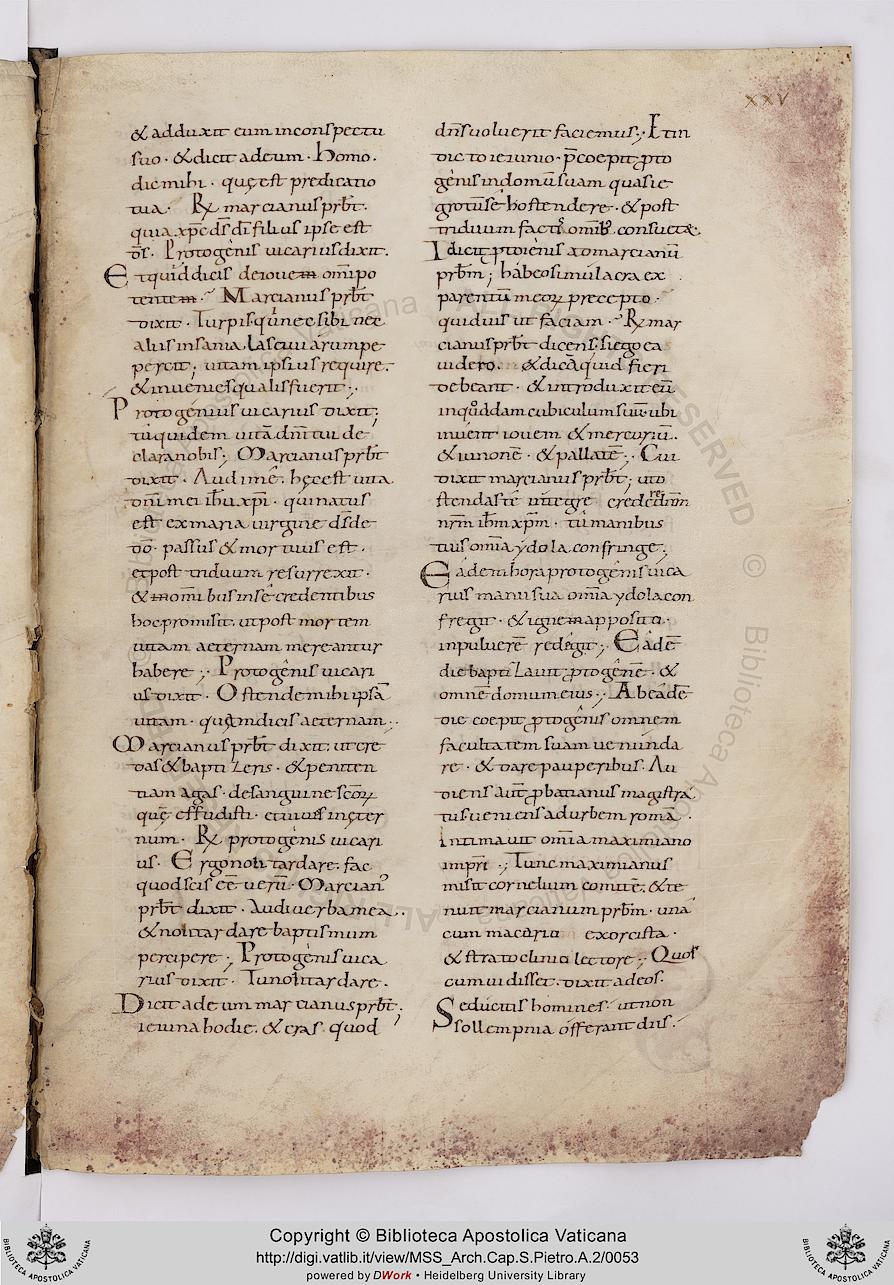 XXV
& adduxit eum inconspectu
suo · & dicit adeum · Homo ·
dic mihi · quę est predicatio
tua · R᷒ marcianus prb̄t ·
quia xp̄c d̄s d̄i filius ipse est
d̄s · Protogenis uicarius dixit ·
Et quid dicis de iouem omnipo
tentem · Marcianus prb̄t
dixit · Turpis
alius insania lasciui
uitam ipsius require ·
& inuenies qualis fuerit ;
Protogenius uicarius dixit ;
tu quidem uitā dn̄i tui de
clara nobis ; Marcianus prb̄t
dixit · Audi me · hęc est uita
dn̄i mei ih̄u xp̄i · qui natus
est ex maria uirgine d̄s de
d̄o · passus & mortuus est ·
et post triduum resurrexit ·
& omnibus in sē credentibus
hoc promisit · ut post mortem
uitam aeternam mereantur
habere ; Protogenis uicari
us dixit · Ostende mihi ipsā
uitam · quam dicis aeternam ;
Marcianus prb̄t dixit ; ut cre
das & baptizeris · & peniten
tiam agas · de sanguine sc̄oꝝ
quē effudisti · et uiuis in ęter
num · R᷒ protogenis uicari
us · Ergo noli tardare · fac
quod scis ēē uerū · Marcian'
prb̄t dixit · Audi uerba mea ·
& noli tardare baptismum
percipere ; Protogenis uica
rius dixit · Tu noli tardare ·
Dicit ad eum marcianus prb̄t ;
ieiuna hodie · & cras · quod
dn̄s uoluerit faciemus ; Et in
dicto ieiunio · p̄ coepit ꝓto
genis in domū suam quasi e
grotūs & hostendere · & post
triduum factis omib; consueta ·
Dicit ꝓtogenis ad marcianū
prb̄m ; habeo simulacra ex
parentū meoꝝ precepto ·
quid uis ut faciam · R᷒ mar
cianus prb̄t dicens ; si ego ea
uidero · & dicā quid fieri
debeant · & introduxit eū
in quoddam cubiculum suū ubi
inuenit iouem & mercuriū ·
& iunonē · & pallatē ; Cui
dixit marcianus prb̄t ; ut o
stendas te integre credere dn̄m
nr̄m ih̄m xp̄m · tu manibus
tuis omīa ydola confringe ·
Eadem hora protogenis uica
rius manu sua omīa ydola con
fregit · & igne apposito ·
in puluerē redegit ; Eadē
die baptizauit ꝓtogenē · &
omnē domum eius ; Ab eadē
die coepit ꝓtogenis omnem
facultatem suam uenunda
re · & dare pauperibus · Au
diens aut̄ probatianus magistra
tus ueniens ad urbem romā ·
intimauit omīa maximiano
impr̄i ; Tunc maximianus
misit cornelium comitē · & te
nuit marcianum prb̄m · unā
cum macario exorcista ·
& stratoclinio lectore ; Quos
cum uidisset · dixit ad eos ·
Seducitis homines · ut non
sollempnia offerant diis ·
Copyright © Biblioteca Apostolica Vaticana
http://digi.vatlib.it/view/MSS_Arch.Cap.S.Pietro.A.2/0053
powered by DWork • Heidelberg University Library
BIBLIOTECA APOSTOLICA VATICANA
BIBLIOTECA APOSTOLICA VATICANA